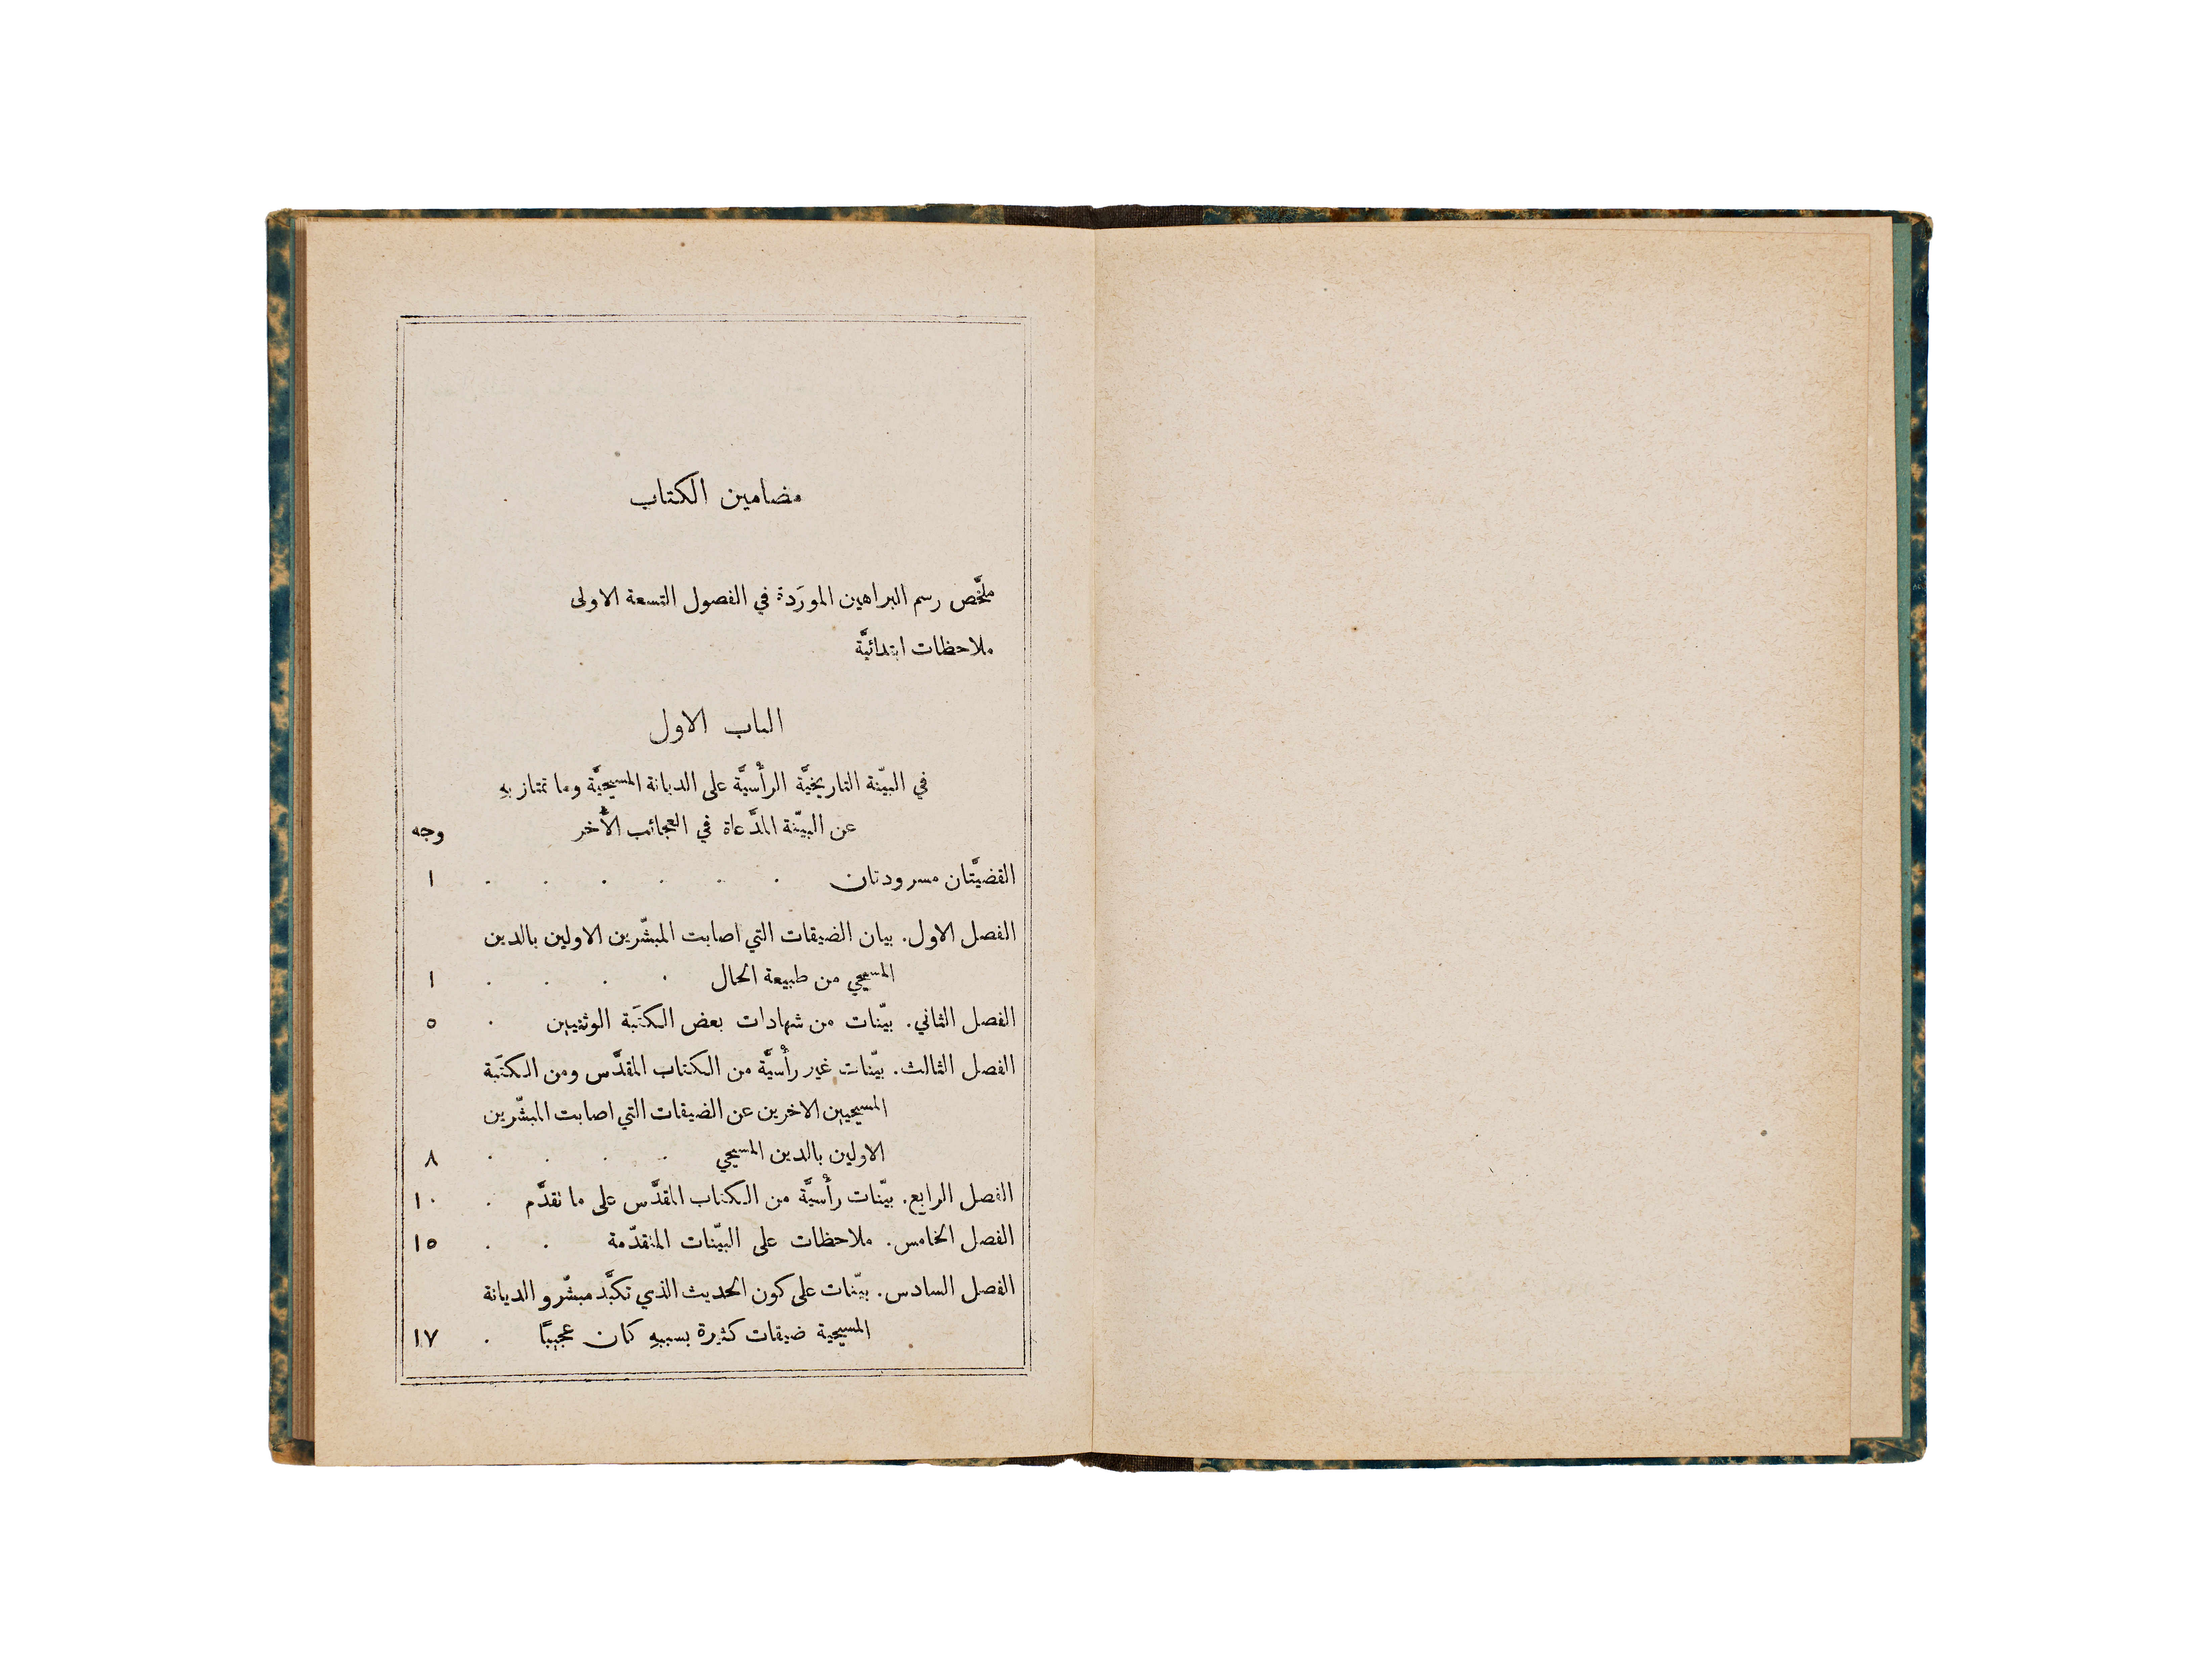 مضامين الكتاب
ملخَّص رسم البراهين المورَدة في الفصول التسعة الاولى
ملاحظات ابتدائيَّة
الباب الاول
في البيّنة التاريخيَّة الرأْسيَّة على الديانة المسيحيَّة وما تمتاز بهِ
عن البيّنة المدَّعاة في العجائب الأُخر
وجه
القضيَّتان مسرودتان . . . . . . ١
الفصل الاول. بيان الضيقات التي اصابت المبشّرين الاولين بالدين
المسيحي من طبيعة الحال . . . . ١
الفصل الثاني. بيّنات من شهادات بعض الكتَبة الوثنيين . ٥
الفصل الثالث. بيّنات غير رأْسيَّة من الكتاب المقدَّس ومن الكتَبة
المسيحيين الاخرين عن الضيقات التي اصابت المبشّرين
الاولين بالدين المسيحي . . . . ٨
الفصل الرابع. بيّنات رأْسيَّة من الكتاب المقدَّس على ما تقدَّم . ١٠
الفصل الخامس. ملاحظات على البيّنات المتقدّمة . . ١٥
الفصل السادس. بيّنات على كون الحديث الذي تكبَّد مبشّرو الديانة
المسيحية ضيقات كثيرة بسببهِ كان عجيبًا . ١٧